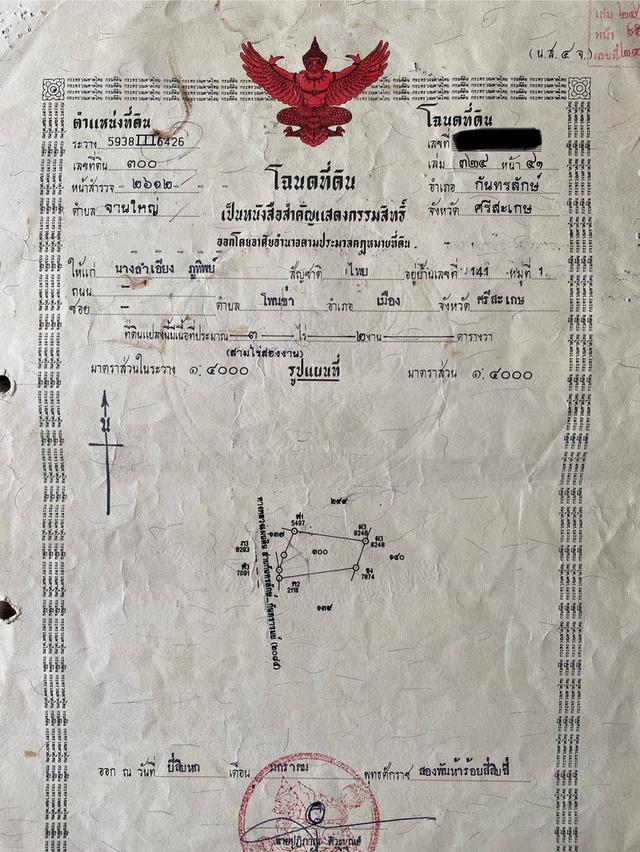 เล่ม
หน้า
เลขที่
(น.ส. ๔ จ.)
ตำแหน่งที่ดิน
ระวาง 5938 III 6426
เลขที่ดิน ๓๐๐
หน้าสำรวจ ๒๖๑๒
ตำบล จานใหญ่
โฉนดที่ดิน
เลขที่
เล่ม ๓๒๔ หน้า ๔๑
อำเภอ กันทรลักษ์
จังหวัด ศรีสะเกษ
โฉนดที่ดิน
เป็นหนังสือสำคัญแสดงกรรมสิทธิ์
ออกโดยอาศัยอำนาจตามประมวลกฎหมายที่ดิน
ให้แก่ นางลำเอียง ภูทิพย์ สัญชาติ ไทย อยู่บ้านเลขที่ 141 หมู่ที่ 1
ถนน –
ซอย – ตำบล โพนข่า อำเภอ เมือง จังหวัด ศรีสะเกษ
ที่ดินแปลงนี้มีเนื้อที่ประมาณ ๓ ไร่ ๒ งาน ตารางวา
(สามไร่สองงาน)
มาตราส่วนในระวาง ๑:๔๐๐๐ รูปแผนที่ มาตราส่วน ๑:๔๐๐๐
น
๒๙๙
5497
๑๓๗
8248
8248
8293
๓๐๐
๑๔๐
7091
7874
2118
๑๓๙
ออก ณ วันที่ ยี่สิบหก เดือน มกราคม พุทธศักราช สองพันห้าร้อยสี่สิบสี่